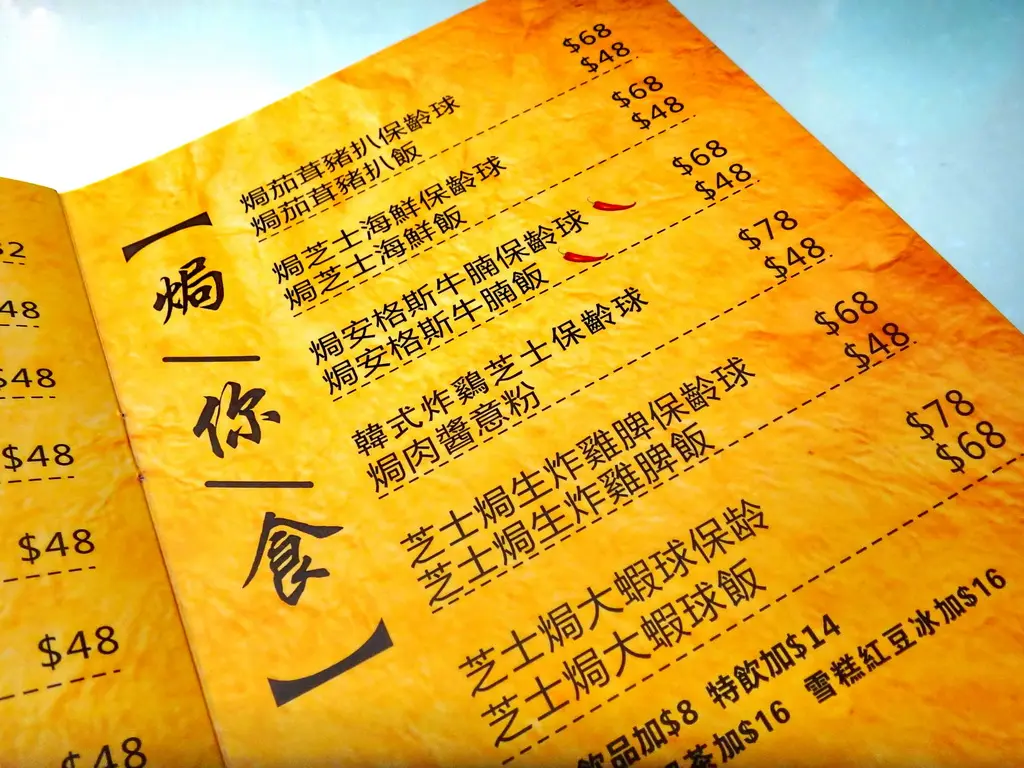 $2
$48
$48
$48
$48
$48
$48
【焗 | 你 | 食】
焗茄茸豬扒保齡球 $68
焗茄茸豬扒飯 $48
焗芝士海鮮保齡球 $68
焗芝士海鮮飯 $48
焗安格斯牛腩保齡球 $68
焗安格斯牛腩飯 $48
韓式炸鷄芝士保齡球 $78
焗肉醬意粉 $48
芝士焗生炸雞脾保齡球 $68
芝士焗生炸雞脾飯 $48
芝士焗大蝦球保龄 $78
芝士焗大蝦球飯 $68
飲品加$8 特飲加$14
茶加$16 雪糕紅豆冰加$16